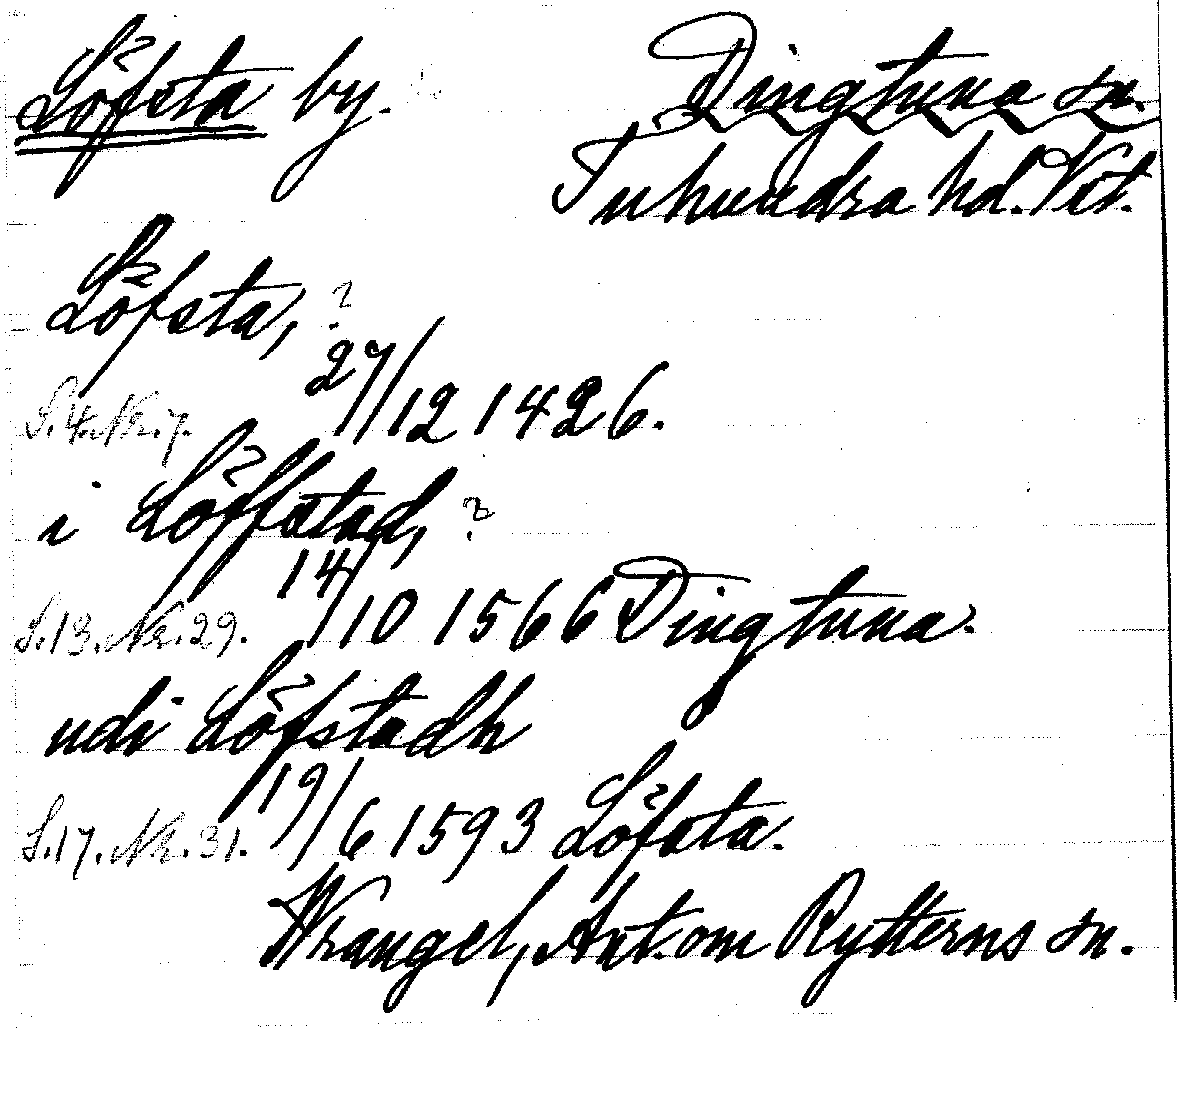 Löfsta by. Dingtuna sn.
Tuhundra hd. Vst.
Löfsta, ?
S.4. Nr. 7. 27/12 1426.
i Löffstad, ?
S.13. Nr. 29. 14/10 1566 Dingtuna.
udi Löfstadh
S.17. Nr. 31. 19/6 1593 Löfsta.
Wrangel, Ant. om Rytterns sn.